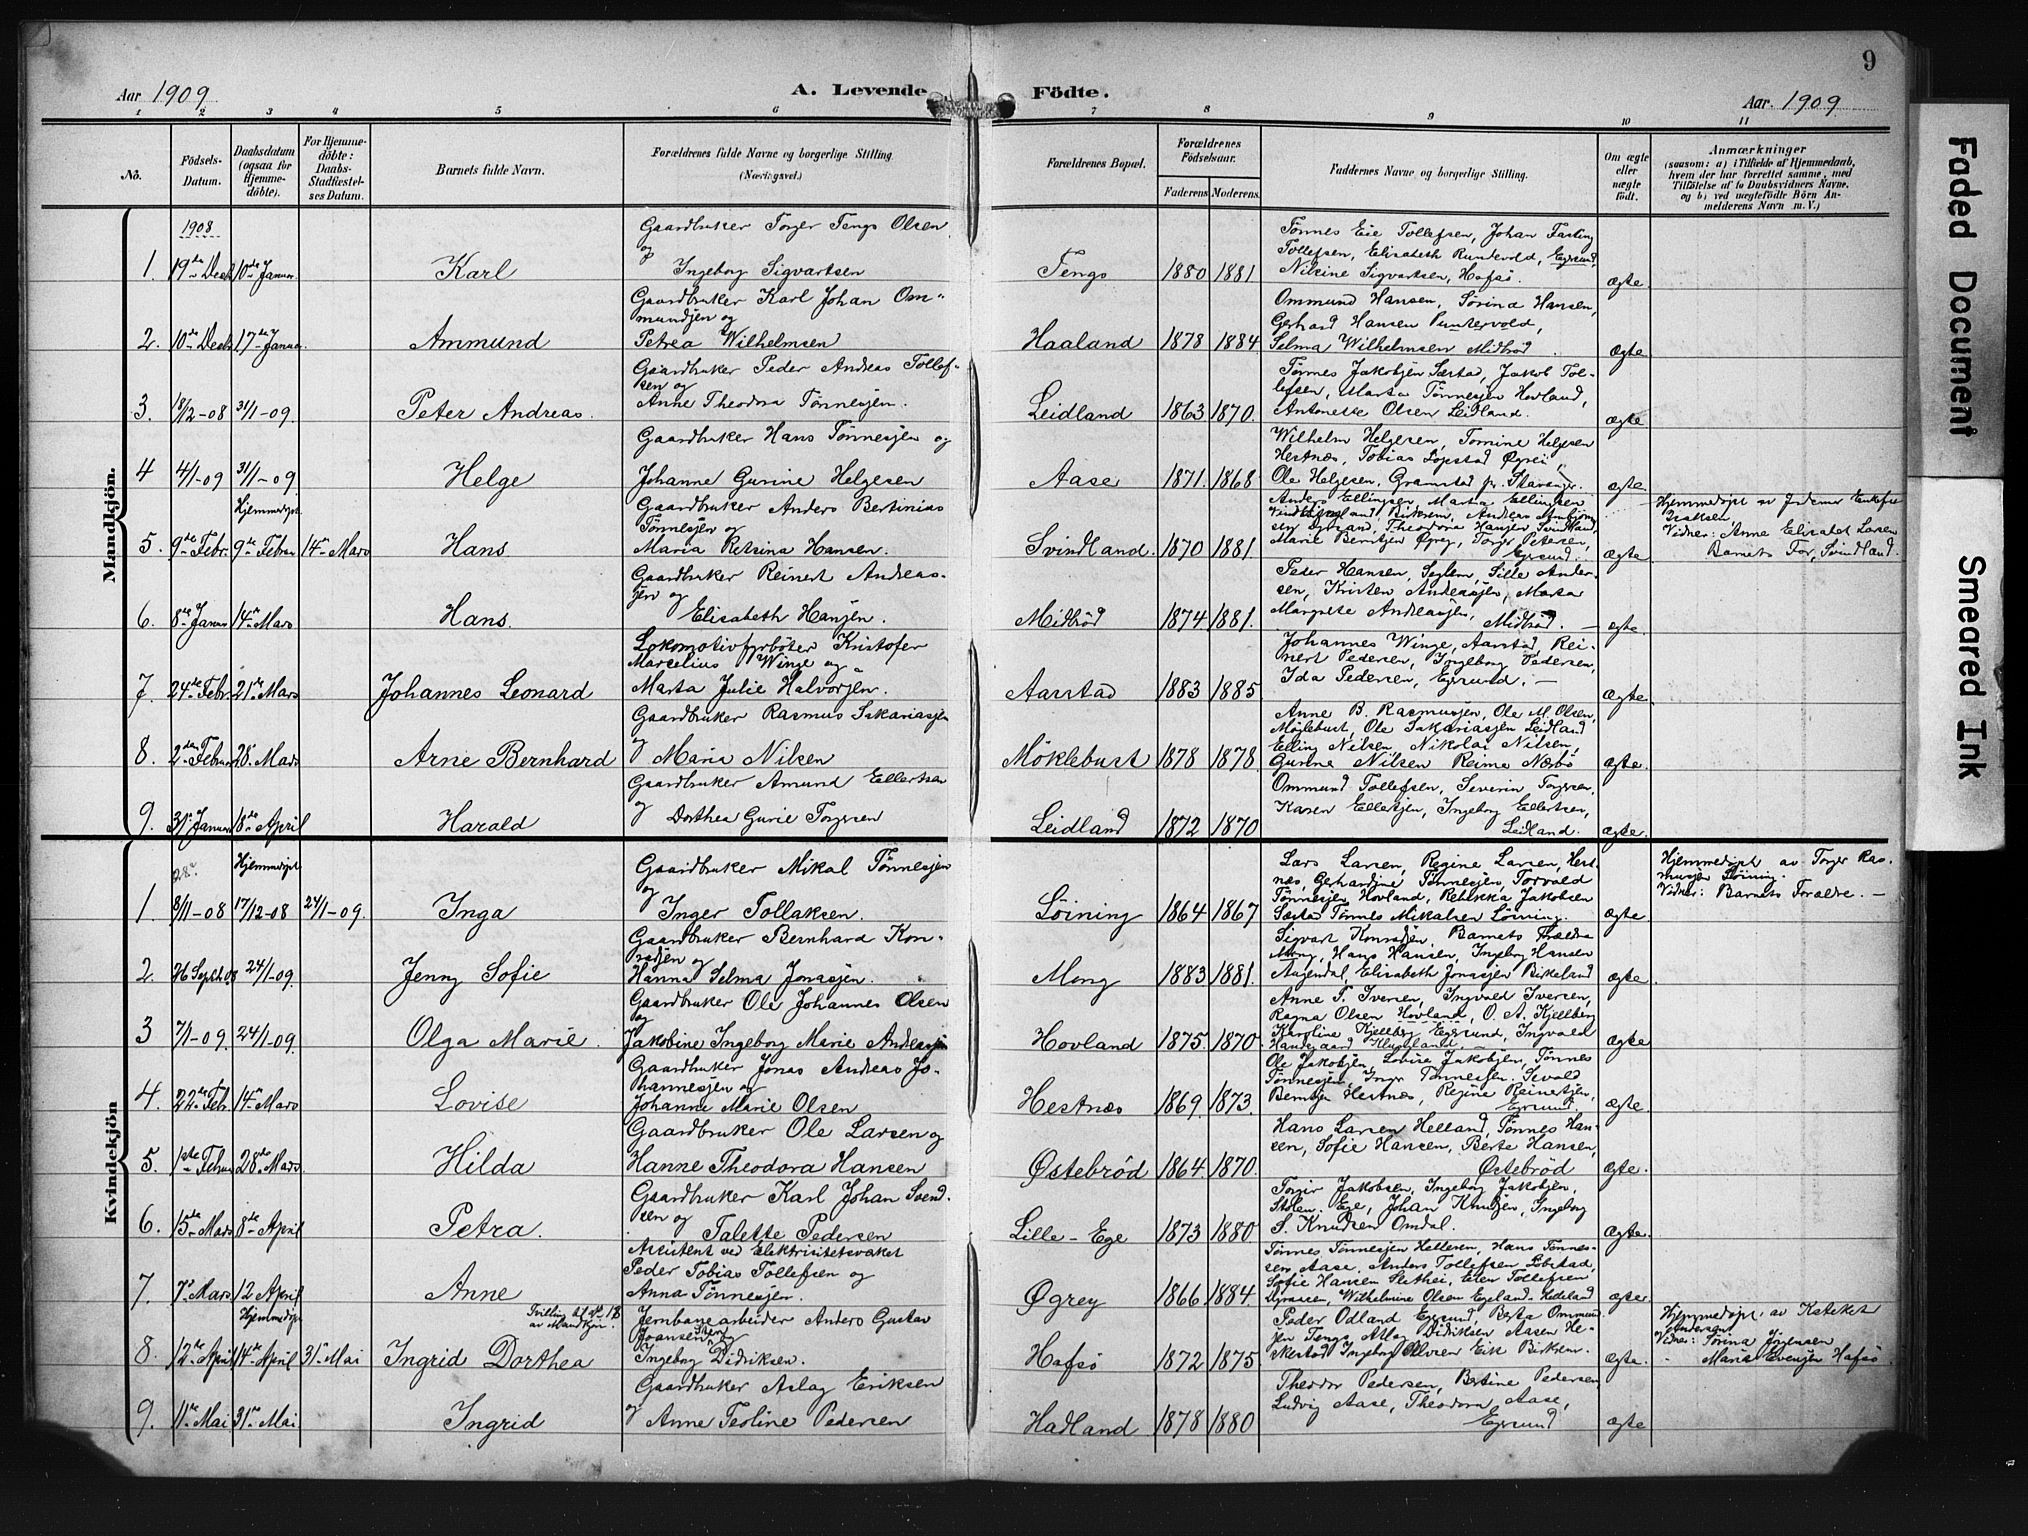 9
Aar 1909
A. Levende Födte.
Aar. 1909
1 2 3 4 5 6 7 8 9 10 11
No.
Födsels-
Datum.
Daabsdatum
(ogsaa for
Hjemme-
döbte).
For Hjemme-
döbte:
Daabs-
Stadfæstel-
ses Datum.
Barnets fulde Navn.
Forældrenes fulde Navne og borgerlige Stilling.
(Næringsvei.)
Forældrenes Bopæl.
Forældrenes
Födselsaar.
Faderens Moderens
Faddernes Navne og borgerlige Stilling.
Om ægte
eller
uægte
födt.
Anmærkninger
(saasom: a) i Tilfælde af Hjemmedaab,
hvem der har forrettet samme, med
Tilföielse af to Daabsvidners Navne.
og b) ved uægtefödte Börn An-
melderens Navn m. V.)
Mandkjön.
1908
1. 19de Decb 10de Januar
Karl
Gaardbruker Torger Tengs Olsen
og
Ingeborg Sigvartsen
Tengs 1880 1881
Tönnes Eie Tollefsen, Johan Fasting
Tollefsen, Elisabeth Rundvold, Egersund,
Nilsine Sigvartsen, Hafsö.
ægte
2. 10de Decb 17de Januar.
Ammund
Gaardbruker Karl Johan Om-
mundsen og
Petrea Wilhelmsen
Haaland 1878 1884
Ommund Hansen, Sörina Hansen,
Gerhard Hansen Puntervold,
Selma Wilhelmsen Midbröd.
ægte
3. 18/12-08 31/1-09.
Peter Andreas.
Gaardbruker Peder Andreas Tollef-
sen og
Anne Theodora Tönnessen.
Leidland 1863 1870.
Tönnes Jakobsen Sæstad, Jakob Tol-
lefsen, Marta Tönnesen Hovland,
Antonette Olsen Leidland.
ægte
4 4/1-09 31/1-09
Helge
Gaardbruker Hans Tönnesen og
Johanne Gurine Helgesen
Aase 1871. 1868
Wilhelm Helgesen, Tomine Helgesen
Hestnæs, Tobias Löpstad Øgrei,
Ole Helgesen, Gramstad pr. Stavanger.
ægte
Hjemmedöpt
5. 9de Febr. 9de Febru 14de Mars
Hans
Gaardbruker Anders Bertinias
Tönnesen og
Maria Retsina Hansen.
Svindland. 1870 1881.
Anders Ellingsen, Marta Ellingsen
Theodora Hansen Svindland,
Marie Berntsen Øgrey, Torger Petersen,
Egersund.
ægte
Hjemmedöpt av Jordemor Enkefru
Isaksen,
Vidner: Anne Elisabet Larsen
Barnets Far, Svindland.
6. 8de Januar 14de Mars
Hans.
Gaardbruker Reinert Andreas-
sen og
Elisabeth Hansen.
Midbröd 1874 1881.
Peder Hansen, Seglem, Sille Ander-
sen, Kristen Andreassen, Marta
Margrete Andreassen, Midbröd.
ægte.
7. 24de Febr. 21de Mars
Johannes Leonard
Lokomotivfyrböter Kristofer
Marcelius Winge og
Marta Julie Halvorsen.
Aarstad 1883 1885.
Johannes Winge, Aarstad, Rei-
nert Pedersen, Ingeborg Pedersen,
Ida Pedersen, Egersund.
ægte.
8. 2den Februar 28de Mars
Arne Bernhard
Gaardbruker Rasmus Sakariasen
og Maria Nilsen
Möklebust 1878 1878.
Anne B. Rasmusen, Ole M. Olsen,
Möklebust, Ole Sakariasen Leidland
Elling Nilsen, Nikolai Nilsen,
Gurine Nilsen Reime Nærbö
ægte.
9. 31te Januar 18de April
Harald
Gaardbruker Amund Ellertsen
og Dorthea Gurie Torgersen
Leidland 1872 1870
Ommund Tollefsen, Severin Torgersen,
Karen Ellertsen, Ingeborg Ellertsen,
Leidland.
ægte.
Kvindekjön
Hjemmedöpt
1. 8/11-08 17/12-08 24/1-09.
Inga
Gaardbruker Mikal Tönnesen
og
Inger Tollaksen.
Löining 1864 1867
Lars Larsen, Regine Larsen, Hest-
næs, Gerhardine Tönnesen, Torvald
Tönnesen Hovland, Rebekka Jakobsen
Sæstad Tönnes Mikalsen Löining.
ægte
Hjemmedöpt av Torger Ras-
musen Löining.
Vidner: Barnets Forældre. —
2. 26 Septb.08 24/1-09.
Jenny Sofie
Gaardbruker Bernhard Kon-
radsen og
Hanna Selma Jonassen.
Mong 1883 1881.
Sigvart Konradsen, Barnets Forældre
Mong, Hans Hansen, Ingeborg Hansen
Augendal, Elisabeth Jonassen Birkeland
ægte.
3 7/1-09. 24/1-09.
Olga Marie.
Gaardbruker Ole Johannes Olsen
og
Jakobine Ingeborg Marie Andreassen
Hovland 1875. 1870
Anne T. Iversen, Ingvald Iversen,
Ragna Olsen Hovland, O. A. Kjellberg
Karoline Kjellberg Egersund, Ingvald
Haugaard
ægte
4. 22de Febr. 14de Mars
Lovise
Gaardbruker Jonas Andreas Jo-
hannesen og
Johanne Marie Olsen
Hestnæs 1869. 1873.
Ole Jakobsen, Lovise Jakobsen, Tönnes
Tönnesen, Inger Tönnesen, Sevald
Berntsen Hestnæs, Regine Reinertsen,
Egersund.
ægte
5. 1ste Februar 28de Mars
Hilda
Gaardbruker Ole Larsen og
Hanne Theodora Hansen
Østebröd 1864. 1870.
Hans Larsen Helland, Tönnes Han-
sen, Sofie Hansen, Berte Hansen,
Østebröd
ægte.
6. 15de Mars 18de April
Petra.
Gaardbruker Karl Johan Svend-
sen og
Talette Pedersen
Lille-Ege 1873 1880
Torger Jakobsen, Ingeborg Jakobsen,
Stolen, Ege, Johan Knudsen, Ingeborg
S. Knudsen Omdal.
ægte.
7. 7de Mars 12 April
Anne
Assistent ved Elektrisitetsværket
Peder Tobias Tollefsen og
Anna Tönnesen.
Øgrey 1866. 1884.
Tönnes Tönnesen Helleren, Hans Tönne-
sen, Aase, Anders Tollefsen Löbstad,
Sofie Hansen Slethei, Elen Tollefsen
Wilhelmine Olsen Egeland-Hedeland
ægte.
Hjemmedöpt
8. 12te April 14de April 31te Mai
Ingrid Dorthea
Tvilling til No. 18
av Mandkjön.
Jernbanearbeider Anders Gustav
Joansen og
Ingeborg Didriksen.
Hafsö 1872 1875
Peder Odland Egersund, Berta Ommund-
sen Tengs, Atlag Didriksen Aasen He-
skestad, Ingeborg Iversen Eik Birkrem.
ægte.
Hjemmedöpt av Kateket
Andersen
Vidner: Tørina Jörgensen
Maria Evensen Hafsö.
9. 11te Mai 31te Mai
Ingrid
Gaardbruker Aslag Eriksen
og Anne Teoline Pedersen
Hadland 1878 1880
Theodor Pedersen, Bertine Pedersen
Ludvig Aase, Theodora Aase,
Egersund
ægte
Faded Document
Smeared Ink